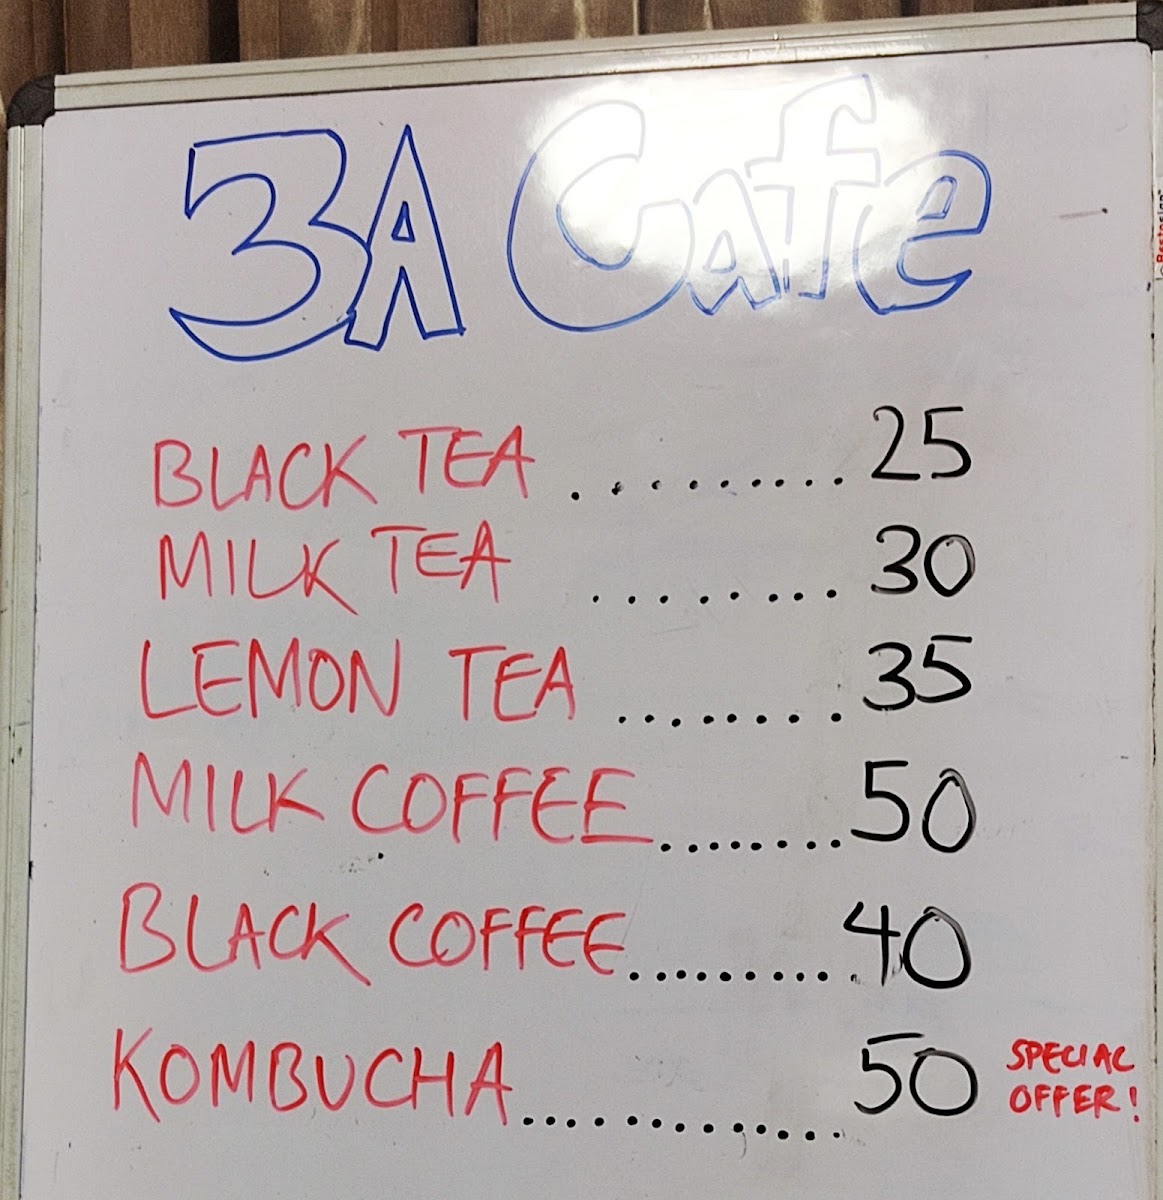 3A Cafe
BLACK TEA .......... 25
MILK TEA ........ 30
LEMON TEA ......... 35
MILK COFFEE ........ 50
BLACK COFFEE .......... 40
KOMBUCHA .............. 50 SPECIAL
OFFER!
Bestasign